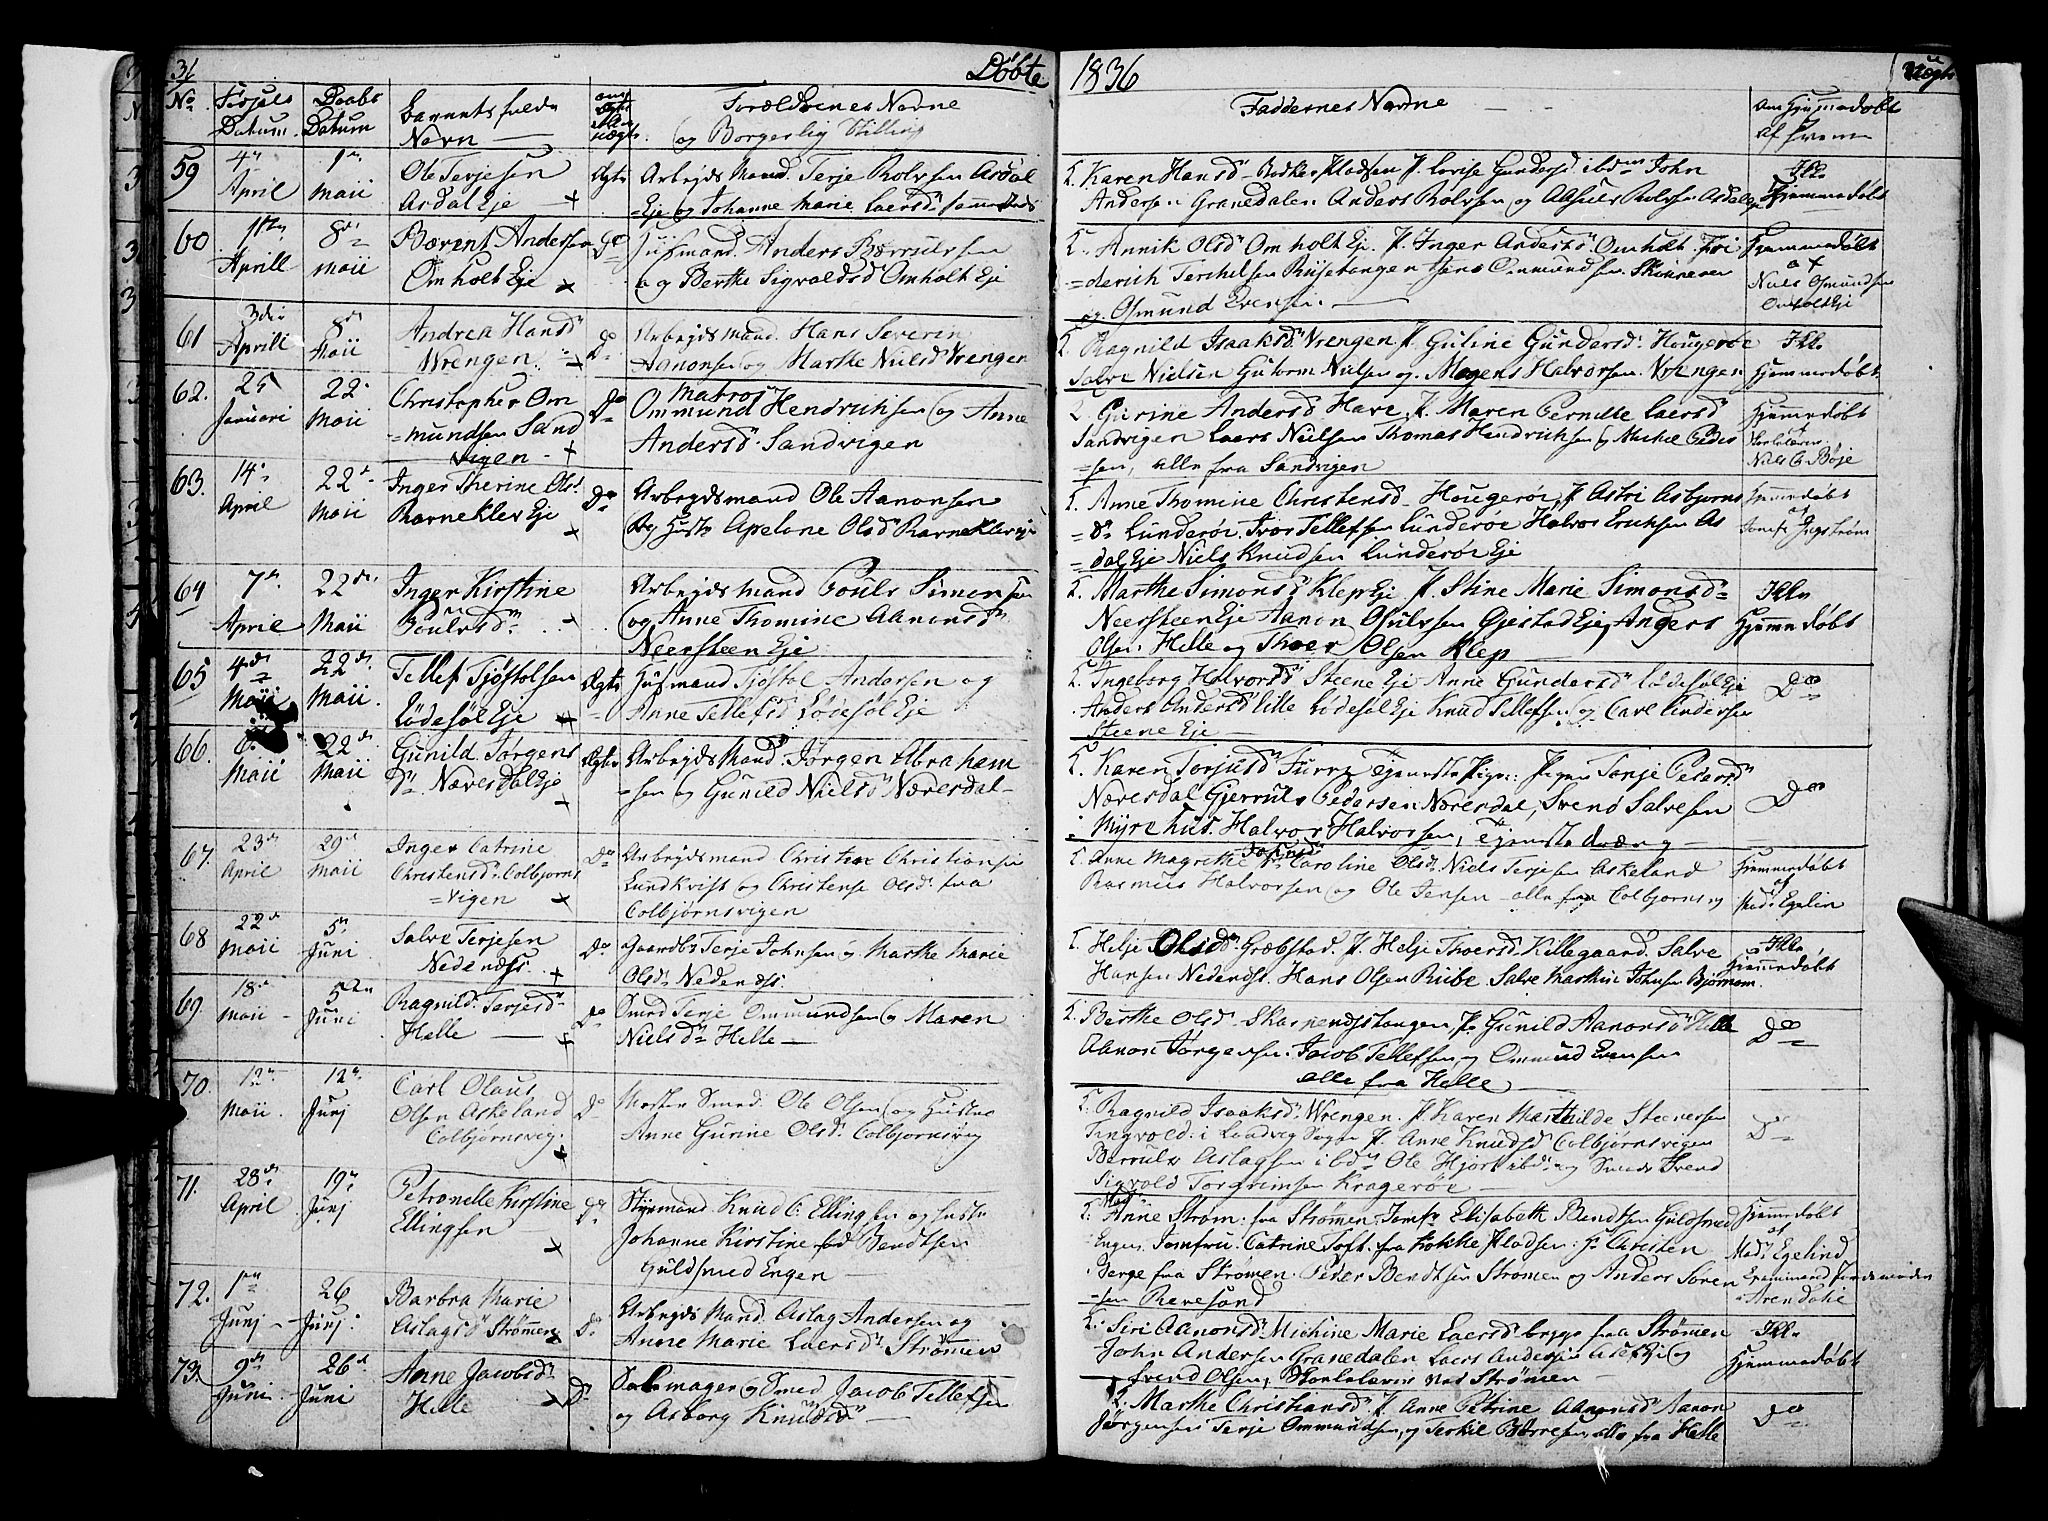 31 Døbte 1836
No Fødsels Datum Daabs Datum Barnets fulde Navn Forældrenes Navne og Borgerlig Stilling
Faddernes Navne om Hjemmedøbt af hvem
59 4de April 1ste Maii Ole Terjesen Asdal Eje Ægte Arbejds Mand Terje Rolvsen Asdal
Eje og Johanne Marie Laersd
Karen Hansd Lovise Gundersd ibdm John
Andersen Granedalen Anders Rolvsen og Rolvsen Asdal
Ikke Hjemmedøbt
60 April 8de Maii Bærent Andersen Omholt Eje
Huusmand Anders
og Berthe Sigvaldsd Omholt Eje
Annik Olsd Omholt Eje P. Inger Andersd Omholt
derich Terchelsen Ommundsen
og Osmund Evensen
Hjemmedøbt af Niels Osmundsen Omholt Eje
61 3die April 8de Maii Andrea Hansd Wrengen Do
Arbejdsmand Hans Severin
Aanonsen og Marthe Nielsd Wrengen
Ragnild Isaaksd Wrengen P. Guline Gundersd Hougerøe
Salve Nielsen Gutorm Nielsen og Mogens Halvorsen Wrengen
Ikke Hjemmedøbt
62. 25 Januari 22 Maii Christopher Ommundsen Sandvigen Do
Matros
Ommund Hendrichsen og Anne
Andersd Sandvigen
Gurine Andersd Have P. Maren Pernille Laersd
Sandvigen Laers Nielsen Thomas Hendrichsen og Michel Peders
sen, alle fra Sandvigen
Hjemmedøbt af Niels Bøje
63. 14 April 22de Maii Inger Therine Olsd Ravneklev Eje Do
Arbejdsmand Ole Aanonsen
og Hustr Apelone Olsd Ravneklev Eje
Anne Thomine Christensd Hougerøe, P. Astri Asbjørns
D Lunderøe Ivar Tellefsen Lunderøe Halvor Eriksen As
dal Eje Niels Knudsen Lunderøe Eje
Hjemmedøbt af
64 7de April 22de Maii Inger Kirstine Poulsd
Arbejdsmand Pouls Simonsen
og Anne Thomine Aanonsd
Neersteen Eje
Marthe Simonsd Klep Eje P. Stine Marie Simonsd
Neersteen Eje Aanon Osulvsen Øjestad Eje, Anders
Olsen Helle og Thoer Olsen Klep
Ikke Hjemmedøbt
65 4de Maii 22de Maii Tellef Tjøstolsen Lødesøl Eje Ægte
Husmand Tjøstol Andersen og
Anne Tellefsd Lødesøl Eje
Ingeborg Halvorsd Steene Eje Anne Gundersd Lødesøl Eje
Anders Andersd Lille Lødesøl Eje Knud Tellefsen og Carl Andersen
Steene Eje
Do
66. Maii 22de Maii Gunild Jørgens D Næversdal Eje Ægte
Arbejds Mand Jørgen Abraham
sen og Gunild Nielsd Næversdal
Karen Torjusd Furre Tjeneste Pige: Pigen Tonje Pedersd
Næversdal Gjerrulv Pedersen Næversdal, Svend Salvesen
Myrehus. Halvor Halvorsen, Tjenestedræng
Do
67. 23de April 29de Maii Inger Catrine Christensd Colbjørnsvigen Do
Arbejdsmand Christen Christiansen
Lundkvist og Christense Olsd fra
Colbjørnsvigen
Anne Magrethe Caroline Olsd Niels Terjesen Askeland
Rasmus Halvorsen og Ole Jensen alle fra Colbjørnsvig
Hjemmedøbt af Mad. Egelin
68 22de Maii 5te Juni Salve Terjesen Nedenæs Do
Gaardbr Terje Johnsen og Marthe Marie
Olsd Nedenæs
Helje Olsd Græbstad P. Helje Thoersd Killegaard. Salve
Hansen Nedenæs Hans Olsen Rube Salve Johnsen
Ikke Hjemmedøbt
69 18de Maii 5te Juni Ragnild Terjesd Helle Do
Smed Terje Ommundsen og Maren
Nielsd Helle
Berthe Olsd P. Gunild Aanonsd Helle
Aanon Jørgensen Jacob Tellefsen og Ommund Evensen
alle fra Helle
Do
70. 12te Maii 12te Junj Carl Olaus Olsen Askeland Colbjørnsvig Do
Mester Smed Ole Olsen og Hustrue
Anne Gurine Olsd Colbjørnsvig
Ragnild Isaaksd Wrengen P. Karen Marthilde Steenersen
Tingvold i Landvig Sogn P. Anne Knudsd Colbjørnsvigen
Berrulv Aslagsen ibd Ole Hjort ibd og Smeds Svend
Sigvold Torgrimsen Kragerøe
Do
71. 28de April 19de Junj Petronelle Kirstine Ellingsen Do
Styrmand Knud C. Ellingsen og Hustr
Johanne Kirstine fød Bendtsen
Guldsmed Engen
Mad. Anne Strøm fra Strømmen, Jomfr Elisabeth Bendtsen Guldsmed
Engen Jomfru Catrine Toft fra Kokke Pladsen: Hr Christen
Berge fra Strømen Peder Bendtsen Strømen og Anders Søren
sen Revesand
Hjemmedøbt af Mad. Egelind Examineret Arendahl
72. 1ste Junj 26 Junj Barbra Marie Aslagsd Strømmen Do
Arbejds Mand Aslag Andersen og
Anne Marie Laersd Strømen
Siri Aanonsd Michine Marie Laersd begge fra Strømmen
John Andersen Granedalen Laers Andersen og
Svend Olsen, Skolelærer ved Strømen
Ikke Hjemmedøbt
73. 9de Juni 26de Juni Anne Jacobsd Helle Do
Salmager og Smed Jacob Tellefsen
og Asborg Knudsd
Marthe Christiansd P. Anne Petrine Aanonsd Aanon
Jørgensen Terje Ommundsen og Terkil Børresen alle fra Helle
Do